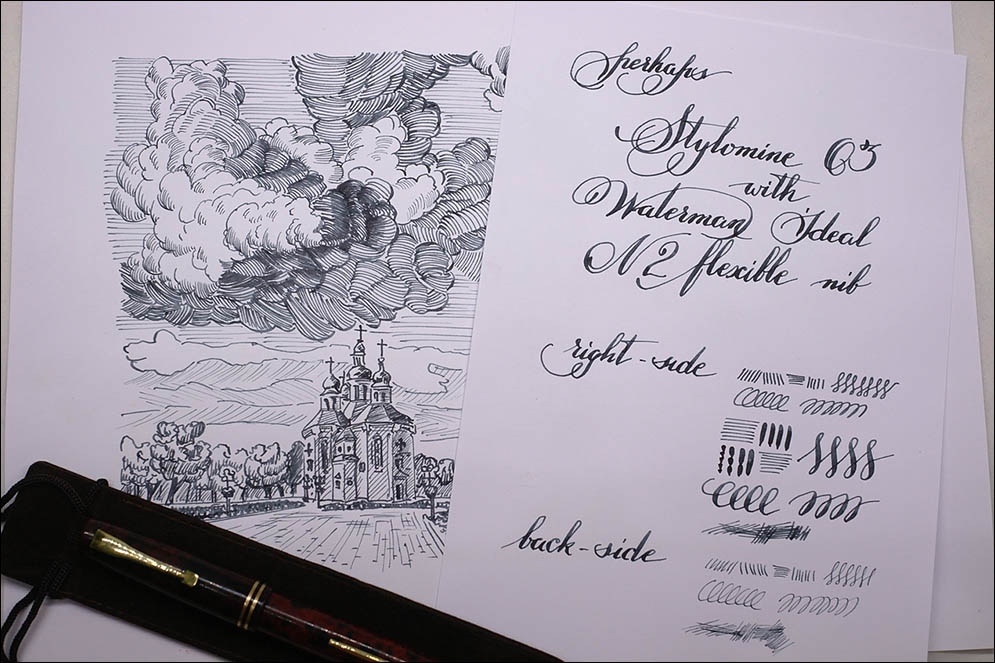 perhaps
Stylomine 03
with
Waterman Ideal
N2 flexible nib
right-side
back-side